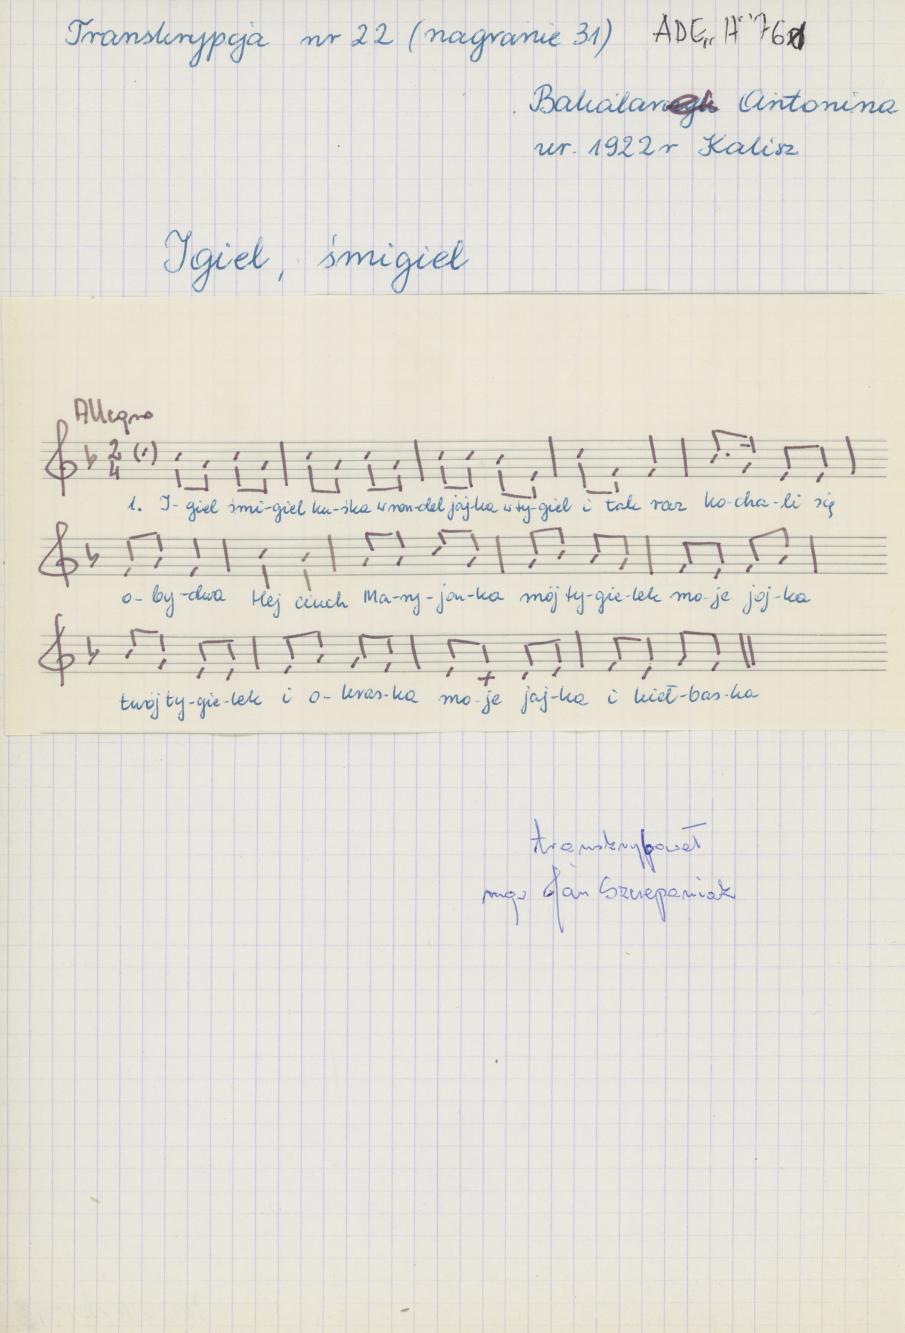 Transkrypcja nr 22 (nagranie 31) ADE "H" 76
Antonina
ur. 1922 r Kalisz
Igiel, śmigiel
Allegro
2
4
1. I-giel śmi-giel ku-ska w ron-del jaj-ka w ty-giel i tak raz ko-cha-li się
o-by-dwa Hej ciuch Ma-ry-jon-ka mój ty-gie-lek mo-je jaj-ka
twój ty-gie-lek i o-kras-ka mo-je jaj-ka i kieł-bas-ka
transkrybował
mgr Jan Szczepaniak